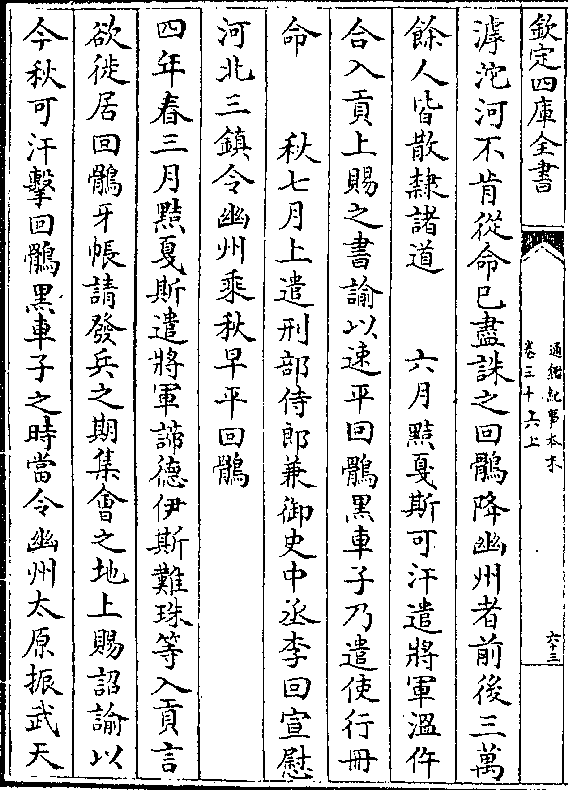 欽定四庫全書
通鑑紀事本末
卷三十六上
六十三
滹沱河不肯從命已盡誅之回鶻降幽州者前後三萬
餘人皆散隷諸道　　六月黠戛斯可汗遣將軍溫仵
合入貢上賜之書諭以速平回鶻黑車子乃遣使行冊
命　　秋七月上遣刑部侍郎兼御史中丞李回宣慰
河北三鎮令幽州乘秋早平回鶻
四年春三月黠戛斯遣將軍諦德伊斯難珠等入貢言
欲徙居回鶻牙帳請發兵之期集會之地上賜詔諭以
今秋可汗擊回鶻黑車子之時當令幽州太原振武天